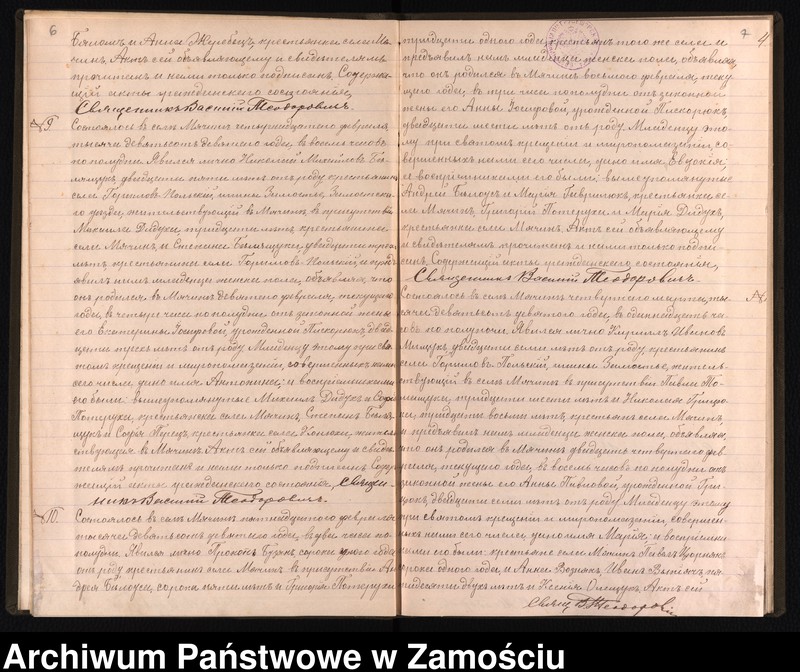 6
и Анны крестьянки села
Актъ сей объявляющему и свидѣтелямъ
прочитанъ и нами только подписанъ. Содержа-
щій акты гражданскаго состоянія,
Священникъ Василій Теодоровичъ.
№ 9.
Состоялось въ селѣ Мячинѣ февраля
тысяча девятьсотъ девятаго года, въ восемь часовъ
по полудни. Явился лично Николай Михайловъ
двадцати пяти лѣтъ отъ роду крестьянинъ
села Горыловъ-Польскій, гмины Замостье, Замостска-
го уѣзда, жительствующій въ Мячинѣ въ присутствіи
Максима Дидуха, тридцати лѣтъ крестьянина
села Мячинъ, и Степана двадцати
лѣтъ крестьянина села Горыловъ-Польскій и предъ-
явилъ намъ младенца женска пола, объявляя, что
онъ родился въ Мячинѣ девятаго февраля, текущаго
года, въ четыре часа по полудни отъ законной жены
его Екатерины Іосифовой урожденной Пискорюкъ,
лѣтъ отъ роду. Младенцу этому при свя-
томъ крещеніи и миропомазаніи, совершенныхъ нами
сего числа, дано имя Антонина; и воспріемниками
его были: вышеупомянутые Максимъ Дидухъ и Софія
Потеруха, крестьянки села Мячинъ, Степанъ
и Софія крестьянки села житель-
ствующая въ Мячинѣ. Актъ сей объявляющему и свидѣ-
телямъ прочитанъ и нами только подписанъ. Содер-
жащій акты гражданскаго состоянія, Священ-
никъ Василій Теодоровичъ.
№ 10.
Состоялось въ селѣ Мячинѣ пятнадцатаго февраля
тысяча девятьсотъ девятаго года, въ два часа по
полудни. Явился лично Прокопъ сорока одного года
отъ роду крестьянинъ села Мячинъ въ присутствіи Ан-
дрея Билоуса, сорока пяти лѣтъ и Григорія Потерухи
7
4
тридцати одного года, крестьянъ того же села и
предъявилъ намъ младенца женска пола, объявляя,
что онъ родился въ Мячинѣ восьмого февраля, теку-
щаго года, въ три часа пополудни отъ законной
жены его Анны Іосифовой, урожденной Пискорюкъ,
двадцати шести лѣтъ отъ роду. Младенцу это-
му при святомъ крещеніи и миропомазаніи, со-
вершенныхъ нами сего числа, дано имя, Евдокія;
и воспріемниками его были: вышеупомянутые
Андрей Билоусъ и Марья Гаврилюкъ, крестьянки се-
ла Мячинъ, Григорій Потеруха и Марія Дидухъ,
крестьянки села Мячинъ. Актъ сей объявляющему
и свидѣтелямъ прочитанъ и нами только подпи-
санъ. Содержащій акты гражданскаго состоянія,
Священникъ Василій Теодоровичъ.
Состоялось въ селѣ Мячинѣ четвертаго марта, ты-
сяча девятьсотъ девятаго года, въ одинадцать ча-
совъ по полуночи. Явился лично Кириллъ Ивановъ
Мищукъ, двадцати семи лѣтъ отъ роду, крестьянинъ
села Горыловъ Польскій, гмины Замостье, житель-
ствующій въ селѣ Мячинъ въ присутствіи Павла То-
мащука, тридцати шести лѣтъ и Николая
тридцати восьми лѣтъ, крестьянъ села Мячинъ,
и предъявилъ намъ младенца женска пола, объявляя,
что онъ родился въ Мячинѣ двадцать четвертаго фев-
раля, текущаго года, въ восемь часовъ по полудни отъ
законной жены его Анны Павловой, урожденной Гри-
двадцати семи лѣтъ отъ роду. Младенцу этому
при святомъ крещеніи и миропомазаніи, совершен-
ныхъ нами сего числа, дано имя Марія; и воспріем-
никами его были: крестьяне села Мячинъ Павелъ
сорока одного года, и Анна Иванъ пя-
тидесяти двухъ лѣтъ и Ксенія Олещукъ. Актъ сей
Свящ. В. Теодорович
Archiwum Państwowe w Zamościu